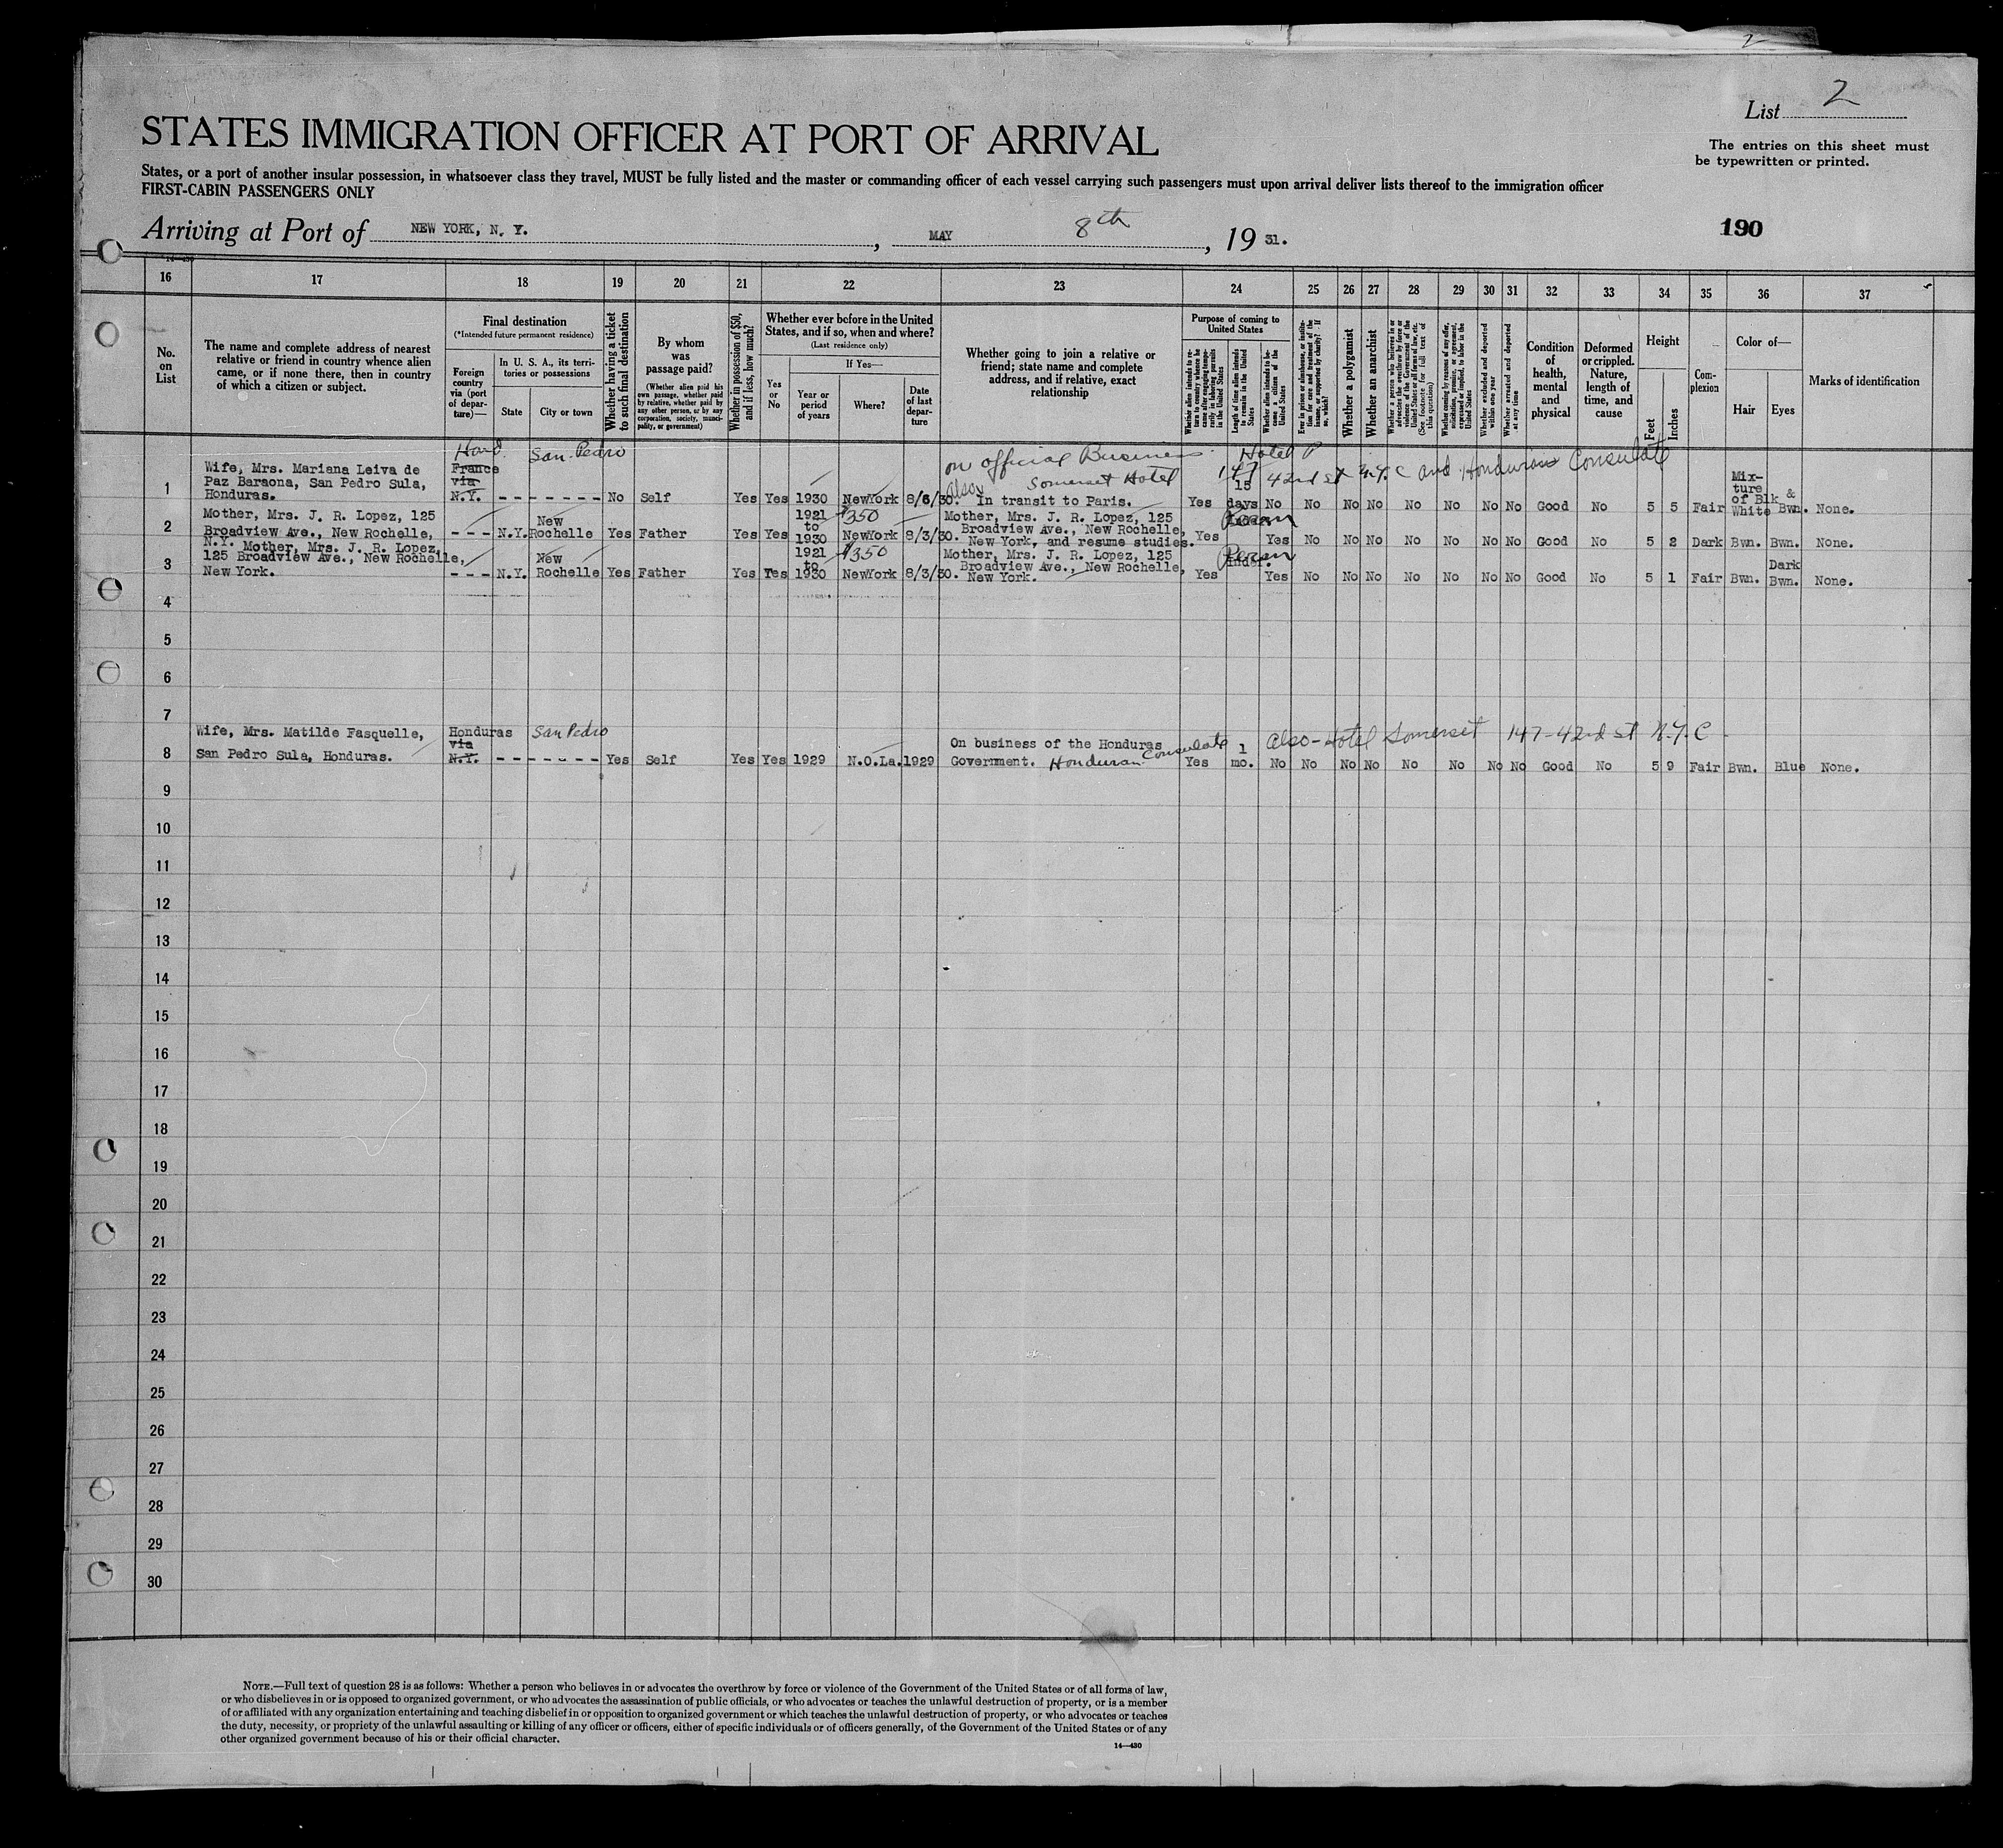 2
List 2
STATES IMMIGRATION OFFICER AT PORT OF ARRIVAL
The entries on this sheet must
be typewritten or printed.
States, or a port of another insular possession, in whatsoever class they travel, MUST be fully listed and the master or commanding officer of each vessel carrying such passengers must upon arrival deliver lists thereof to the immigration officer
FIRST-CABIN PASSENGERS ONLY
Arriving at Port of NEW YORK, N. Y. , MAY 8th , 19 31.
190
16 17 18 19 20 21 22 23 24 25 26 27 28 29 30 31 32 33 34 35 36 37
No.
on
List
The name and complete address of nearest
relative or friend in country whence alien
came, or if none there, then in country
of which a citizen or subject.
Final destination
(*Intended future permanent residence)
Foreign
country
via (port
of depar-
ture)—
In U. S. A., its terri-
tories or possessions
State
City or town
Whether having a ticket
to such final destination
By whom
was
passage paid?
(Whether alien paid his
own passage, whether paid
by relative, whether paid by
any other person, or by any
corporation, society, munici-
pality, or government)
Whether in possession of $50,
and if less, how much?
Whether ever before in the United
States, and if so, when and where?
(Last residence only)
Yes
or
No
If Yes—
Year or
period
of years
Where?
Date
of last
depar-
ture
Whether going to join a relative or
friend; state name and complete
address, and if relative, exact
relationship
Purpose of coming to
United States
Whether alien intends to re-
turn to country whence he
came after engaging tempo-
rarily in laboring pursuits
in the United States
Length of time alien intends
to remain in the United
States
Whether alien intends to be-
come a citizen of the
United States
Ever in prison or almshouse, or institu-
tion for care and treatment of the
insane, or supported by charity? If
so, which?
Whether a polygamist
Whether an anarchist
Whether a person who believes in or
advocates the overthrow by force or
violence of the Government of the
United States or all forms of law, etc.
(See footnote for full text of
this question)
Whether coming by reason of any offer,
solicitation, promise, or agreement,
expressed or implied, to labor in the
United States
Whether excluded and deported
within one year
Whether arrested and deported
at any time
Condition
of
health,
mental
and
physical
Deformed
or crippled.
Nature,
length of
time, and
cause
Height
Feet
Inches
Com-
plexion
Color of—
Hair
Eyes
Marks of identification
Hond. San Pedro on official Business Hotel P
also Somerset Hotel 147 42nd St N.Y.C and Honduran Consulate
Wife, Mrs. Mariana Leiva de
Paz Baraona, San Pedro Sula,
Honduras.
France
via
N.Y.
1 - - - - - - - - No Self Yes Yes 1930 NewYork 8/6/30. In transit to Paris. Yes 15 days No No No No No No No No Good No 5 5 Fair Mix-
ture
of Blk &
White Bwn. None.
Mother, Mrs. J. R. Lopez, 125
Broadview Ave., New Rochelle,
N.Y.
2 - - - N.Y. New
Rochelle Yes Father Yes $350 Yes 1921
to
1930 NewYork 8/3/30. Mother, Mrs. J. R. Lopez, 125
Broadview Ave., New Rochelle,
New York, and resume studies. Yes Yes No No No No No No No Good No 5 2 Dark Bwn. Bwn. None.
Mother, Mrs. J. R. Lopez,
125 Broadview Ave., New Rochelle,
New York.
3 - - - N.Y. New
Rochelle Yes Father Yes $350 Yes 1921
to
1930 NewYork 8/3/30. Mother, Mrs. J. R. Lopez, 125
Broadview Ave., New Rochelle,
New York. Yes Yes No No No No No No No Good No 5 1 Fair Bwn. Dark
Bwn. None.
4
5
6
7
Wife, Mrs. Matilde Fasquelle,
San Pedro Sula, Honduras.
Honduras San Pedro
via
N.Y.
8 - - - - - - - - Yes Self Yes Yes 1929 N.O.La. 1929 On business of the Honduras
Government. Honduran Consulate Also-Hotel Somerset 147-42nd st N.Y.C
Yes 1
mo. No No No No No No No No Good No 5 9 Fair Bwn. Blue None.
9
10
11
12
13
14
15
16
17
18
19
20
21
22
23
24
25
26
27
28
29
30
NOTE.—Full text of question 28 is as follows: Whether a person who believes in or advocates the overthrow by force or violence of the Government of the United States or of all forms of law,
or who disbelieves in or is opposed to organized government, or who advocates the assassination of public officials, or who advocates or teaches the unlawful destruction of property, or is a member
of or affiliated with any organization entertaining and teaching disbelief in or opposition to organized government or which teaches the unlawful destruction of property, or who advocates or teaches
the duty, necessity, or propriety of the unlawful assaulting or killing of any officer or officers, either of specific individuals or of officers generally, of the Government of the United States or of any
other organized government because of his or their official character.
14—430